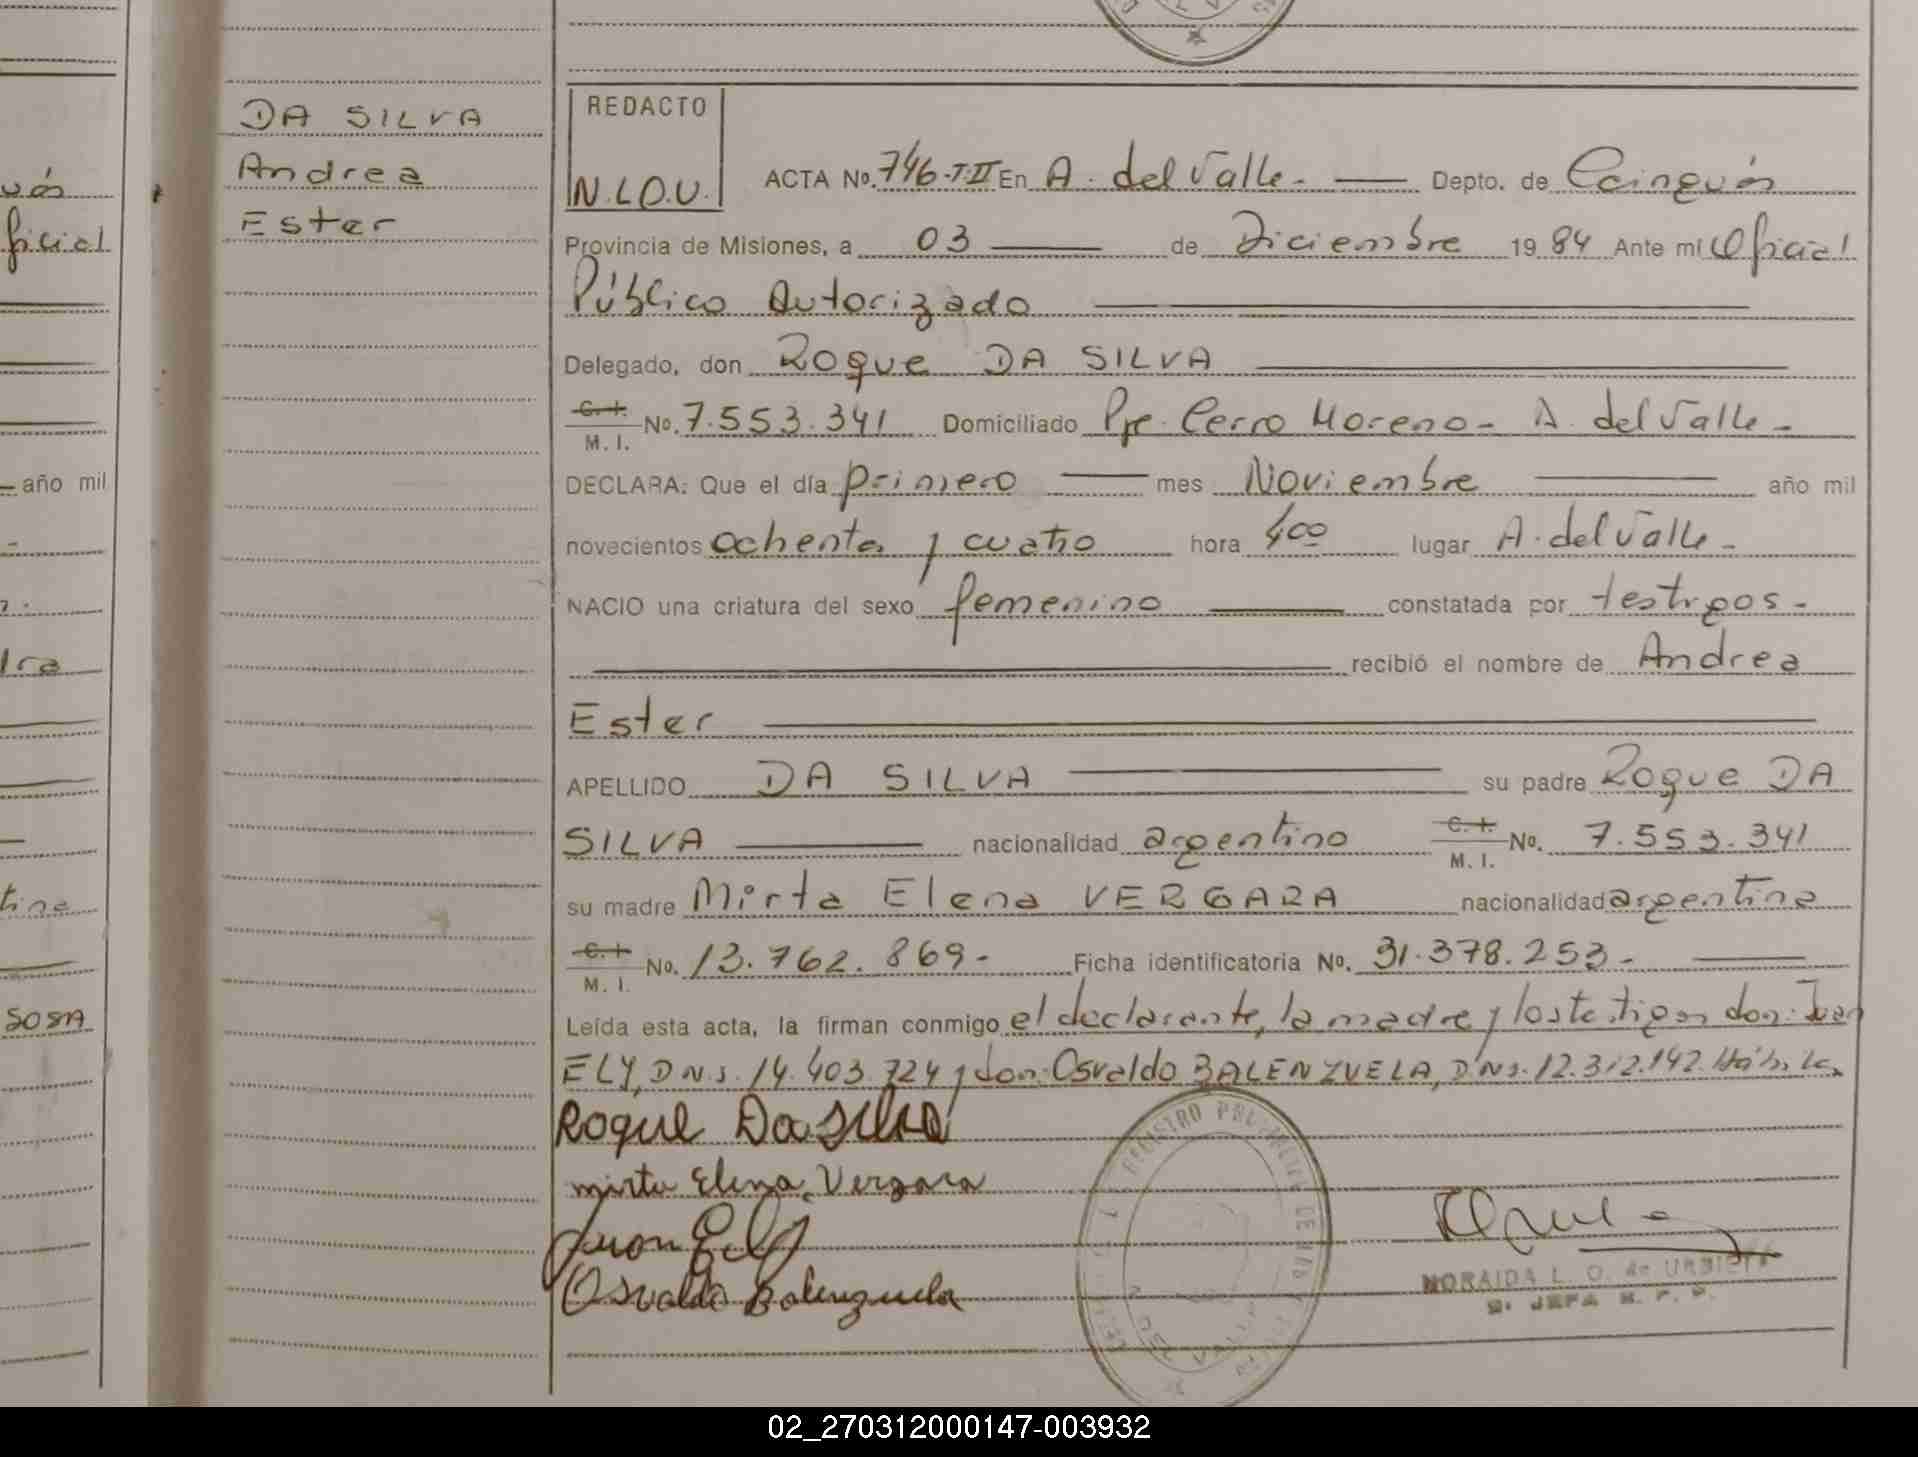 DA SILVA
Andrea
Ester
REDACTO
N.L.O.U.
ACTA No. 746-T-II En A. del Valle.- Depto. de Cainguás
Provincia de Misiones, a 03 de Diciembre 19 84 Ante mí Oficial
Público Autorizado
Delegado, don Roque DA SILVA
C. I. M. I. No. 7.553.341 Domiciliado Pje. Cerro Moreno- A. del Valle-
DECLARA: Que el día primero mes Noviembre año mil
novecientos ochenta y cuatro hora 4oo lugar A. del Valle-
NACIO una criatura del sexo femenino constatada por testigos-
recibió el nombre de Andrea
Ester
APELLIDO DA SILVA su padre Roque DA
SILVA nacionalidad argentino C. I. M. I. No. 7.553.341
su madre Mirta Elena VERGARA nacionalidad argentina
C. I. M. I. No. 13.762.869- Ficha identificatoria No. 31.378.253-
Leída esta acta, la firman conmigo el declarante, la madre y los testigos don: Juan
ELY, D.N.I. 14.403.724 y don: Osvaldo BALENZUELA, D.N.I. 12.312.142. Hábiles
Roque Da Silva
mirta Elena Vergara
Juan Ely
Osvaldo Balenzuela
NORAIDA L. O. de URBIETA
JEFA R. P. P.
año mil
SOSA
02_270312000147-003932